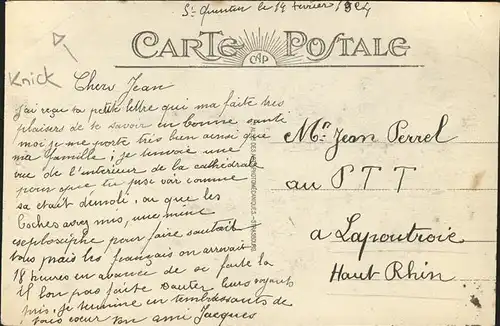 St Quentin le 14 février 1924
CARTE POSTALE
CAP
Knick
Cherv Jean
J'ai reçu ta petite lettre qui ma faite tres
plaisers de te savoir en bonne sante
moi je me porte très bien ainsi que
ma famille; je t'envoie une
vue de l'interieur de la cathédrale
pour que tu puisse voir comme
sa était demoli, ou que les
boches avez mis, une mine
explosiphe pour faire sautait
tous mais les français on arrivait
18 heures en abance de se forte la
il lon pas faite sauter leurs voyants
pris, je termine en t'embrassants de
tous coeur ton ami Jacques
Mr Jean Perrel
au P T T
a Lapoutroie
Haut Rhin